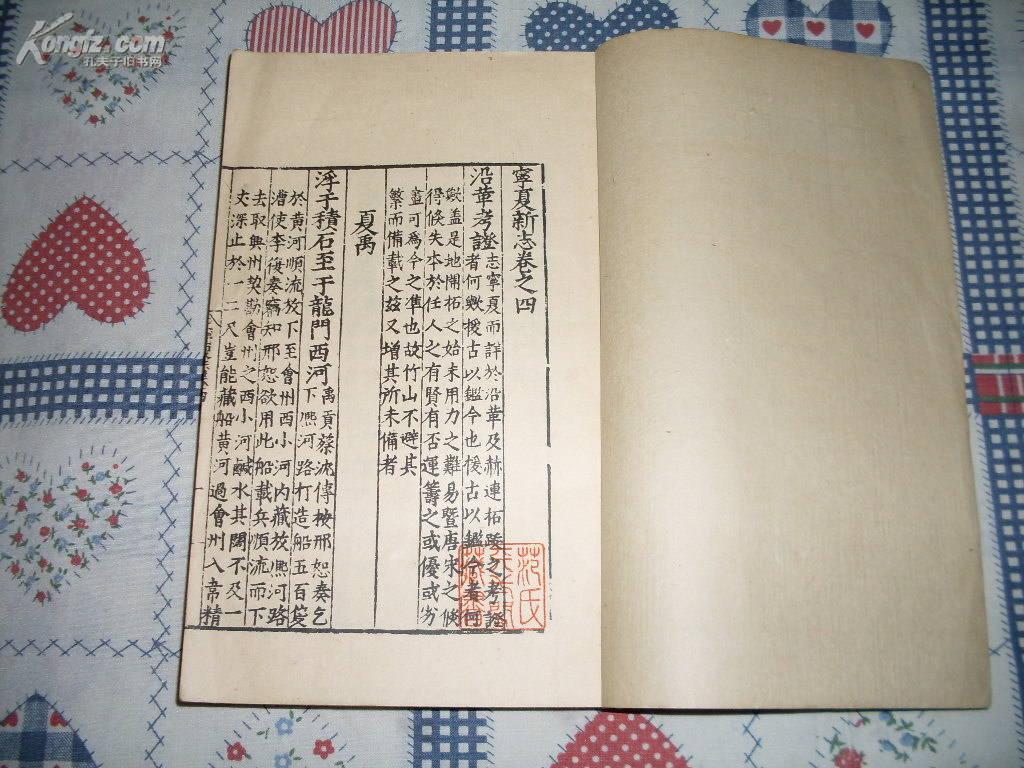 Kongfz.com
孔夫子旧书网
寧夏新志卷之四
沿革考證志寧夏而詳於沿革及赫連拓跋之考證
者何歟援古以鑑今也援古以鑑今者何
歟盖是地開拓之始末用力之難易暨唐宋之
得失本於任人之有賢有否運籌之或優或劣
可為今之凖也故竹山不避其
繁而備載之兹又增其所未備者
夏禹
浮于積石至于龍門西河禹貢蔡沈傳按邢恕奏乞
下熈河路打造船五百隻
於黄河順流放下至會州西小河内藏放熈河路
漕使李復奏竊知邢恕欲用此船載兵順流而下
去取興州契勘會州之西小河鹹水其闊不及一
丈深止於一二尺豈能藏船黄河過會州入韋精
范氏